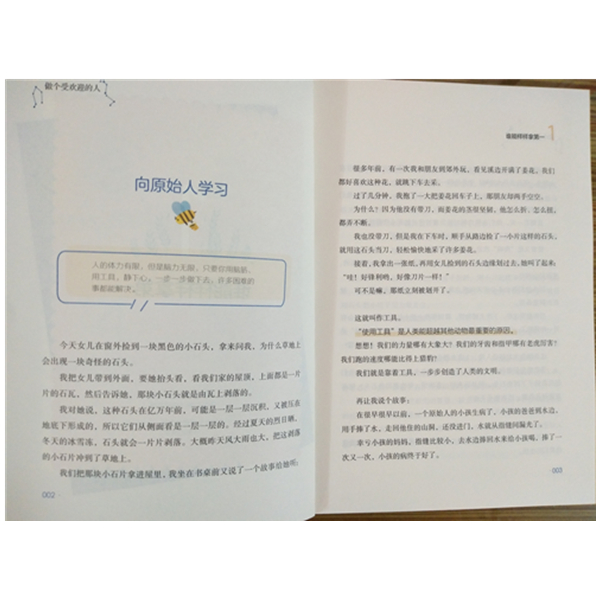 做个受欢迎的人
向原始人学习
人的体力有限，但是脑力无限，只要你用脑筋、
用工具，静下心，一步一步做下去，许多困难的
事都能解决。
今天女儿在窗外捡到一块黑色的小石头，拿来问我，为什么草地上
会出现一块奇怪的石头。
我把女儿带到外面，要她抬头看，看我们家的屋顶，上面都是一片
片的石瓦，然后告诉她，那块小石头就是由瓦上剥落的。
我对她说，这种石头在亿万年前，可能是一层一层沉积，又被压在
地底下形成的，所以它们从侧面看是一层一层的。经过夏天的烈日晒，
冬天的冰雪冻，石头就会一片片剥落。大概昨天风大雨也大，把这剥落
的小石片冲到了草地上。
我们把那块小石片拿进屋里，我坐在书桌前又说了一个故事给她听：
002
谁能样样拿第一
1
很多年前，有一次我和朋友到郊外玩，看见溪边开满了姜花，我们
都好喜欢这种花，就跳下车去采。
过了几分钟，我抱了一大把姜花回车子上，那朋友却两手空空。
为什么？因为他没有带刀，而姜花的茎很坚韧，他怎么折、怎么扭，
都弄不断。
我也没带刀，但是我在下车时，顺手从路边捡了一小片这样的石头，
就用这石头当刀，轻松愉快地采了许多姜花。
接着，我拿出一张纸，再用女儿捡到的石头边缘划过去，她叫了起来：
“哇！好锋利哟，好像刀片一样！”
可不是嘛，那纸立刻被划开了。
这就叫作工具。
“使用工具”是人类能超越其他动物最重要的原因。
想想！我们的力量哪有大象大？我们的牙齿和指甲哪有老虎厉害？
我们跑的速度哪能比得上猎豹？
我们就是靠着工具，一步步创造了人类的文明。
再让我说个故事：
在很早很早以前，一个原始人的小孩生病了，小孩的爸爸到水边，
用手捧了水，走回他住的山洞，还没进门，水就从指缝间漏光了。
幸亏小孩的妈妈，指缝比较小，去水边捧回水来给小孩喝，捧了一
次又一次，小孩的病终于好了。
003